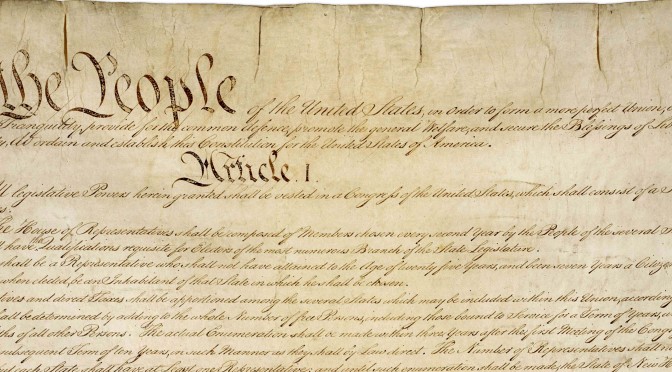 the People of the United States, in Order to form a more perfect Union,
Tranquility, provide for the common defence, promote the general Welfare, and secure the Blessings of
do ordain and establish this Constitution for the United States of America.
Article. I.
legislative Powers herein granted shall be vested in a Congress of the United States, which shall consist of a
The House of Representatives shall be composed of Members chosen every second Year by the People of the several
have the Qualifications requisite for Electors of the most numerous Branch of the State Legislature.
shall be a Representative who shall not have attained to the Age of twenty five Years, and been seven Years a Citizen
when elected, be an Inhabitant of that State in which he shall be chosen.
and direct Taxes shall be apportioned among the several States which may be included within this Union, according
shall be determined by adding to the whole Number of free Persons, including those bound to Service for a Term of Years,
of all other Persons. The actual Enumeration shall be made within three Years after the first Meeting of the
subsequent Term of ten Years, in such Manner as they shall by Law direct. The Number of Representatives shall
such State shall have at Least one Representative; and until such enumeration shall be made, the State of New